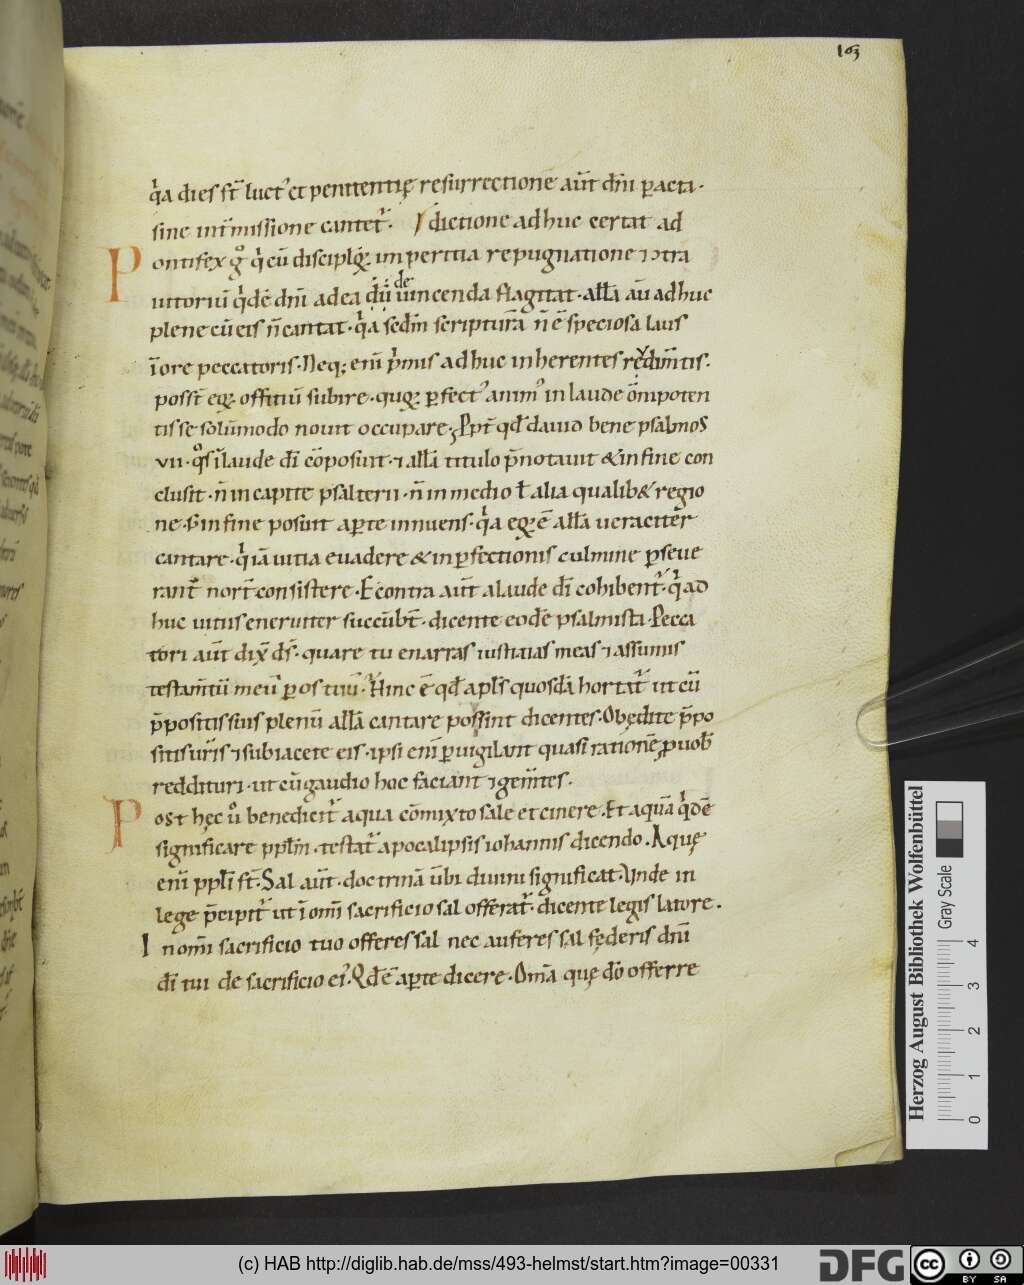 163
q̇a dies st̄ luct᾽ et penitentię resurrectione aut̄ dn̄i ꝑacta·
sine int̄missione cantet᷑. Idictione adhuc certat ad
Pontifex gͦ qͥ cū discipl᾽q; imperitia repugnatione ɔtra
uitiorū qͥdē dn̄i ad ea
de
uincenda flagitat· all̄a aū adhuc
plene cū eis n̄ cantat· qͥa sedm̄ scripturā n̄ ē speciosa laus
ī ore peccatoris. Neq; eni᷒ pͥmis adhuc inherentes
poss̄t offitiū subire· ꝑfect᾽ anim᾽ in laude om̄poten
tis se solūmodo nouit occupare. Ppt̄ qd̄ dauid bene psalmos
vii· qͦs ī laude dī cōposuit· ⁊ all̄a titulo p̄notauit & in fine con
clusit· n̄ in capite psalterii· n̄ in medio ł alia qualib& regio
ne· s; in fine posuit aꝑte innuens· qͥa ē all̄a ueraciter
cantare· qͥ iā uitia euadere & in ꝑfectionis culmine ꝑseue
rant̄ consistere· E contra aut̄ a laude dī cohibent᷑· qͥ ad
huc uitiis eneruiter succūbt̄· dicente eodē psalmista· Pecca
tori aut̄ dix̄ ds̄· quare tu enarras iustitias meas ⁊ assumis
testam̄tū meū ꝑ os tuū· Hinc ē qd̄ apl̄s quosdā hortat᷑ ut cū
p̄positis suis plenū all̄a cantare possint dicentes· Obędite p̄po
sitis uris̄ ⁊ subiacete eis· ipsi eni᷒ ꝑuigilant quasi rationē ꝓ uob̄
reddituri· ut cū gaudio hoc faciant ⁊ gem̄tes·
Post hęc uͦ benedicit᷑ aqua cōmixto sale et cinere· Et aquā qͥdē
significare ppl̄m· testat᷑ apocalipsis iohannis dicendo· Aquę
eni᷒ ppl̄i st̄· Sal aut̄· doctrinā ūbi diuini significat· Unde in
lege p̄cipit᷑ ut ī om̄i sacrificio sal offerat᷑· dicente legis latore·
In om̄i sacrificio tuo offeres sal nec auferes sal fęderis dn̄i
dī tui de sacrificio ei᾽· Qd̄ ē aꝑte dicere· Om̄a quę dō offerre
Herzog August Bibliothek Wolfenbüttel
Gray Scale
0 1 2 3 4
(c) HAB http://diglib.hab.de/mss/493-helmst/start.htm?image=00331
DFG
cc BY SA